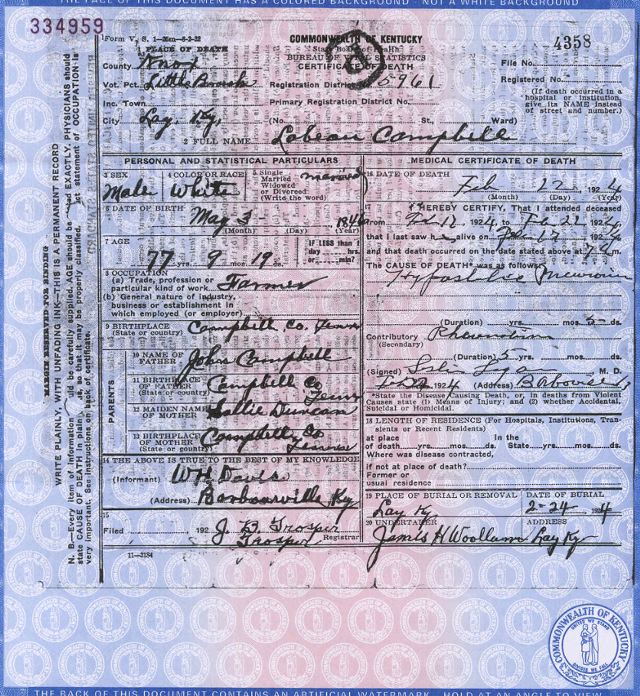 THE FACE OF THIS DOCUMENT HAS A COLORED BACKGROUND NOT A WHITE BACKGROUND
334959
Form V. S. 1
1 PLACE OF DEATH
County Knox
Vot. Pct. Little Brush
Inc. Town
City Lay, Ky,
COMMONWEALTH OF KENTUCKY
State Board of Health
BUREAU OF VITAL STATISTICS
CERTIFICATE OF DEATH
Registration District No. 5961
Primary Registration District No.
(No. St., Ward)
4358
File No.
Registered No.
(If death occurred in a hospital or institution give its NAME instead of street and number.)
2 FULL NAME Campbell
PERSONAL AND STATISTICAL PARTICULARS
3 SEX
Male
4 COLOR OR RACE
White
5 Single
Married
Widowed
or Divorced
(Write the word)
married
6 DATE OF BIRTH
May 3 1846
(Month) (Day) (Year)
7 AGE
77 yrs. 9 mos. 19 ds.
IF LESS than 1 day hrs. or min?
8 OCCUPATION
(a) Trade, profession or particular kind of work Farmer
(b) General nature of industry, business or establishment in which employed (or employer)
9 BIRTHPLACE
(State or country)
Campbell Co. Tenn
PARENTS
10 NAME OF FATHER
John Campbell
11 BIRTHPLACE OF FATHER
(State or country)
Campbell Co
Tenn
12 MAIDEN NAME OF MOTHER
Sallie Duncan
13 BIRTHPLACE OF MOTHER
(State or country)
Campbell Co
14 THE ABOVE IS TRUE TO THE BEST OF MY KNOWLEDGE
(Informant) W H Davis
(Address) Barbourville Ky
15
Filed 192 J D Trosper
Trosper Registrar
11—3184
MEDICAL CERTIFICATE OF DEATH
16 DATE OF DEATH
Feb 22 1924
(Month) (Day) (Year)
17 I HEREBY CERTIFY, That I attended deceased
from Feb 12 1924 to Feb 22 1924
that I last saw h alive on Feb 17 192
and that death occurred on the date stated above at 7 m.
The CAUSE OF DEATH* was as follows:
(Duration) yrs. mos. 5 ds.
Contributory Rheumatism
(Secondary)
(Duration) 5 yrs. mos. ds.
(Signed) M. D.
1924 (Address)
*State the Disease Causing Death, or, in deaths from Violent Causes state (1) Means of Injury; and (2) whether Accidental, Suicidal or Homicidal.
18 LENGTH OF RESIDENCE (For Hospitals, Institutions, Transients or Recent Residents)
at place of death yrs. mos. ds. In the State yrs. mos. ds.
Where was disease contracted,
if not at place of death?
Former or
usual residence
19 PLACE OF BURIAL OR REMOVAL
Lay Ky
DATE OF BURIAL
2-24 1924
20 UNDERTAKER
James H Woollum
ADDRESS
Lay Ky
MARGIN RESERVED FOR BINDING
WRITE PLAINLY, WITH UNFADING INK—THIS IS A PERMANENT RECORD
N. B.—Every item of information should be carefully supplied. AGE should be stated EXACTLY. PHYSICIANS should
state CAUSE OF DEATH in plain terms, so that it may be properly classified. Exact statement of OCCUPATION is
very important. See instructions on back of certificate.
COMMONWEALTH OF KENTUCKY
UNITED WE STAND
DIVIDED WE FALL
THE BACK OF THIS DOCUMENT CONTAINS AN ARTIFICIAL WATERMARK HOLD AT AN ANGLE TO VIEW